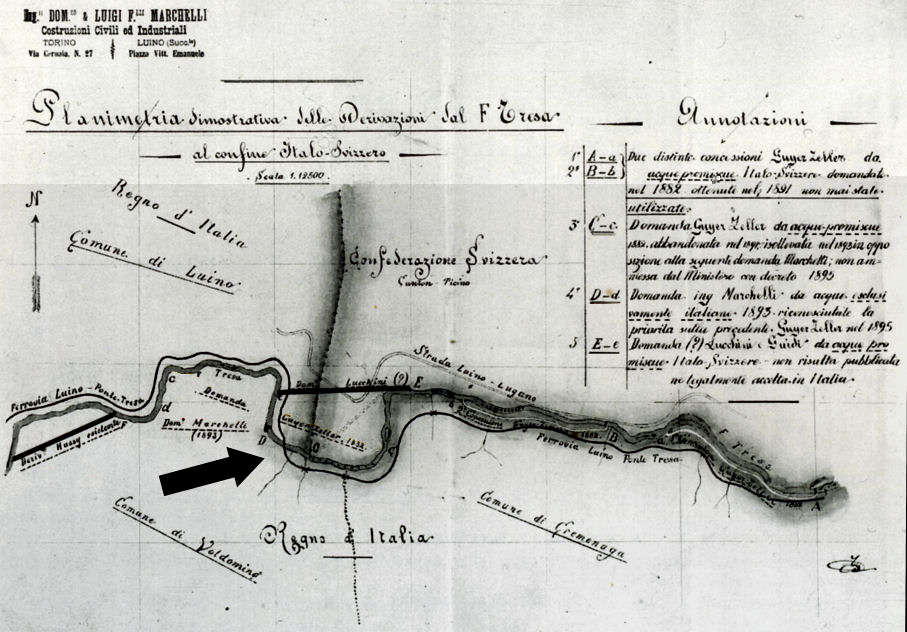 Ing.ri DOM.co & LUIGI F.lli MARCHELLI
Costruzioni Civili ed Industriali
TORINO
Via Cernaia, N. 27
LUINO (Succ.le)
Piazza Vitt. Emanuele
Planimetria dimostrativa delle Derivazioni dal F. Tresa
al confine Italo-Svizzero
Scala 1:12500
Annotazioni
1° A-a
2° B-b
Due distinte concessioni Guyer Zeller da
acque promiscue Italo-Svizzere domandate
nel 1882 ottenute nel 1891 non mai state
utilizzate.
3° C-c Domanda Guyer Zeller da acque promiscue
abbandonata nel oppo
sizione alla seguente domanda Marchelli; non am-
messa dal Ministero con decreto 1895
4° D-d Domanda ing Marchelli da acque esclusi
vamente italiane 1893 riconosciutale la
priorità sulla precedente Guyer Zeller nel 1895
5 E-e Domanda (?) Lucchini e da acque pro
miscue Italo-Svizzere non risulta pubblicata
ne legalmente accolta in Italia
N
Regno d'Italia
Comune di Luino
Confederazione Svizzera
Canton Ticino
Strada Luino-Lugano
Ferrovia Luino-Ponte-Tresa
Deriv. Hussy esistente
Tresa
c
d
Domanda
Dom. Marchelli
(1893)
Dom. Lucchini (?) E
Guyer-Zeller 1882
D
C
B
a
b
F. Tresa
A
Ferrovia Luino Ponte Tresa
Comune di Voldomino
Regno d'Italia
Comune di Cremenaga